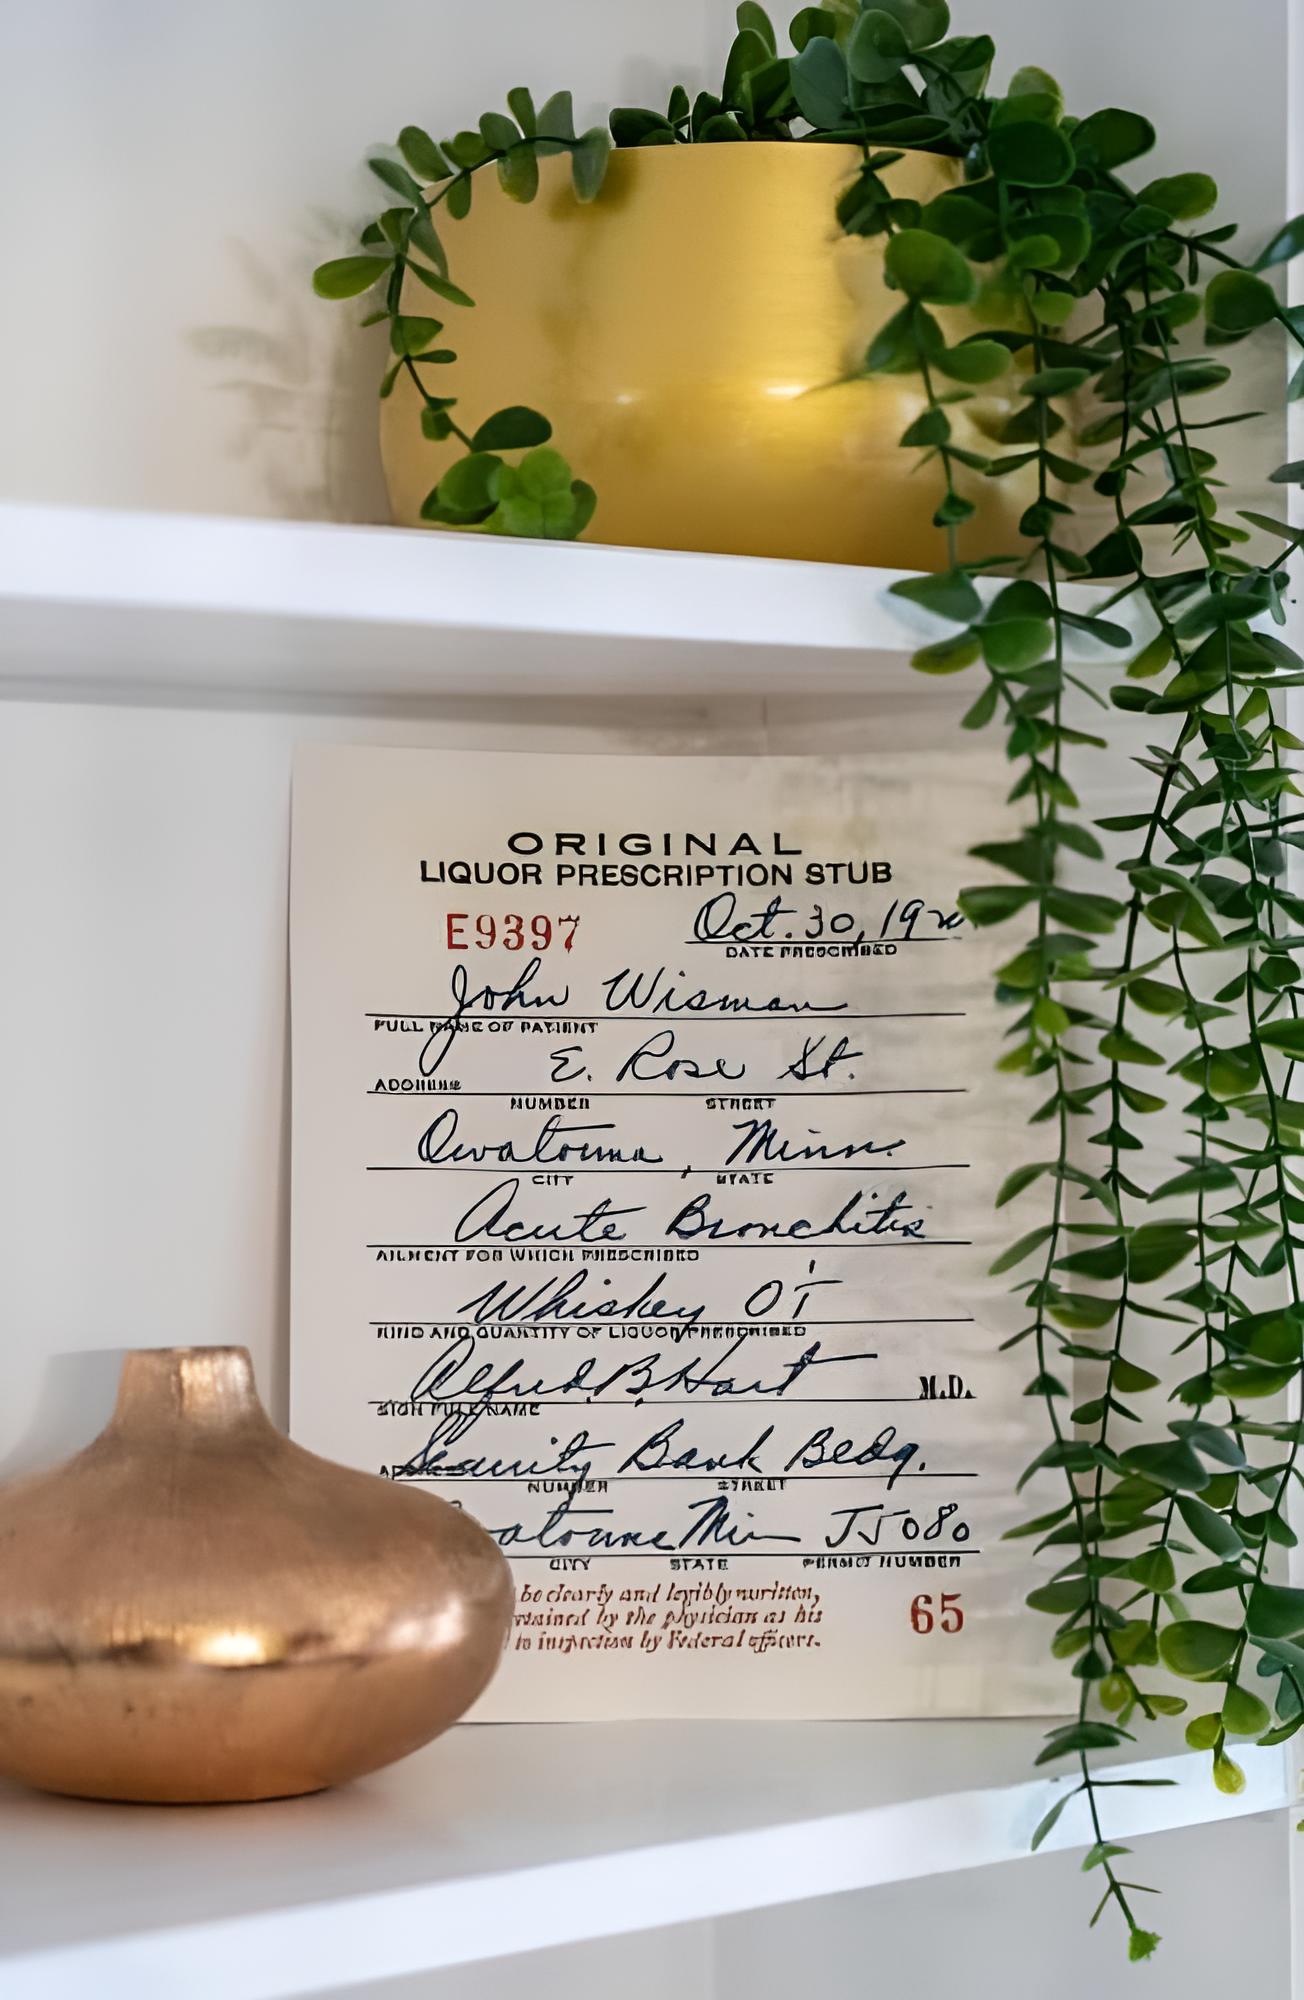 ORIGINAL
LIQUOR PRESCRIPTION STUB
E9397 Oct. 30, 19
DATE PRESCRIBED
John Wisman
FULL NAME OF PATIENT
E. Rose St.
ADDRESS
NUMBER STREET
Owatonna, Minn.
CITY STATE
Acute Bronchitis
AILMENT FOR WHICH PRESCRIBED
Whiskey
KIND AND QUANTITY OF LIQUOR PRESCRIBED
Alfred B. Hart M.D.
SIGN FULL NAME
Security Bank Bldg.
NUMBER STREET
CITY STATE PERMIT NUMBER
be clearly and legibly written,
by the physician as his 65
to inspection by Federal officers.